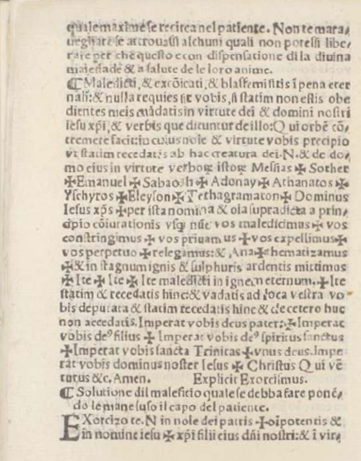 quile maxime se recitea nel patiente. Non te mara
uegliare se attrouassi alchuni quali non potessi libe
rare per che questo e con dispensatione di la diuina
maiestade & a salute de le loro anime.
¶ Maledicti, & excõicati, & blasfemi stis ĩ pena eter
nali: & nulla requies sit vobis, si statim non estis obe
dientes meis mãdatis in virtute dei & domini nostri
Iesu xp̃i, & verbis que dicuntur de illo: Qui orbẽ cõ
tremere facit in cuius nõie & virtute vobis precipio
vt statim recedatis ab hac creatura dei. N. & de do-
mo eius in virtute verboꝝ istoꝝ Messias ✠ Sother
✠ Emanuel ✠ Sabaoth ✠ Adonay ✠ Athanatos ✠
Yschyros ✠ Eleyson ✠ Tethagramaton ✠ Dominus
Iesus xp̃s ✠ per ista nomina & oĩa supradicta a prin-
cipio cõiurationis vsq; nũc vos maledicimus ✠ vos
constringimus ✠ vos priuamus ✠ vos expellimus ✠
vos perpetuo ✠ relegamus: & Ana ✠ thematizamus
✠ & in stagnum ignis & sulphuris ardentis mittimus
✠ Ite ✠ Ite ✠ Ite maledicti in ignem eternum. ✠ Ite
statim & recedatis hinc & vadatis ad loca vestra vo
bis deputata & statim recedatis hinc & de cetero huc
non accedatis. Imperat vobis deus pater: ✠ Imperat
vobis de⁹ filius ✠ Imperat vobis de⁹ spiritus sanctus
✠ Imperat vobis sancta Trinitas ✠ vnus deus. Impe
rat vobis dominus noster Iesus ✠ Christus Qui vẽ
turus &c. Amen. Explicit Exorcismus.
¶ Solutione dil maleficio quale se debba fare ponẽ-
do le mane suso il capo del patiente.
EXorcizo te. N in nõie dei patris ✠ oĩpotentis &
in nomine iesu ✠ xp̃i filii eius dñi nostri: & ĩ vir-